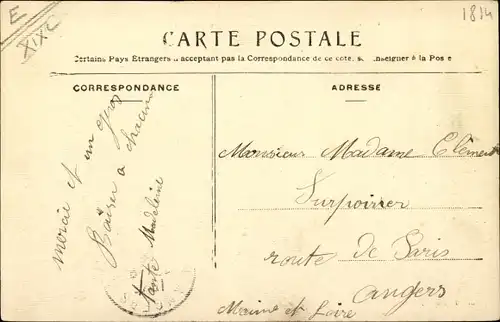 E
XIXC
1814
CARTE POSTALE
Certains Pays Etrangers n'acceptant pas la Correspondance de ce coté, se renseigner à la Poste
CORRESPONDANCE
merci et un gros
Baiser a chacun
Tante Madeleine
ADRESSE
Monsieur Madame Clément
Surpoirier
route de Paris
Angers
Maine et Loire